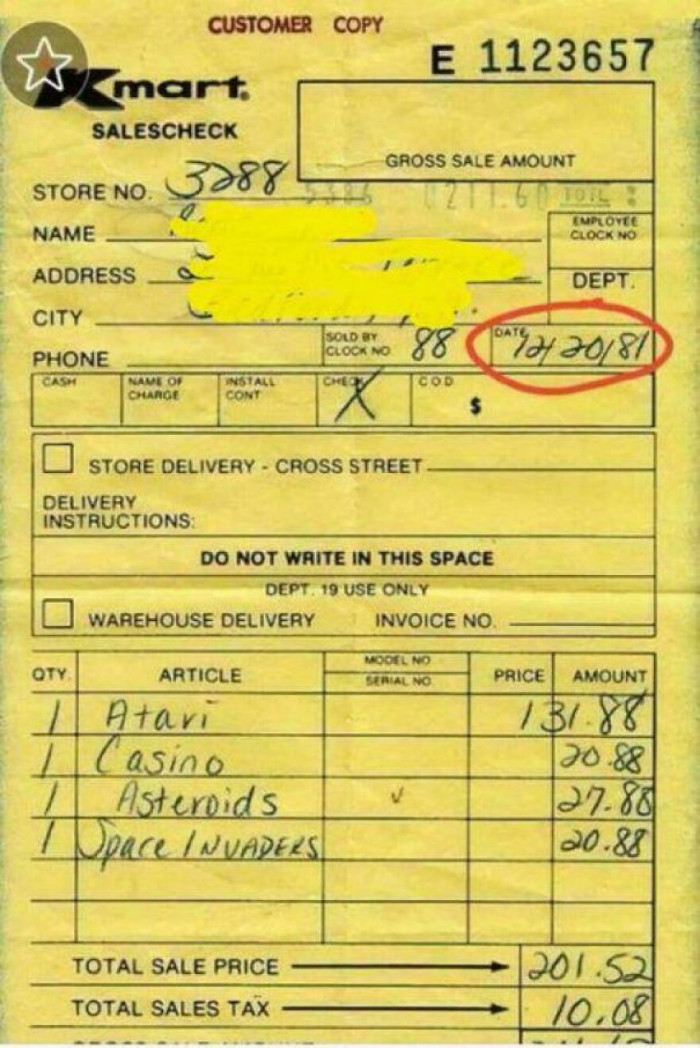 CUSTOMER COPY
E 1123657
Kmart
SALESCHECK
GROSS SALE AMOUNT
STORE NO. 3288
0211.60 TOTL
NAME
EMPLOYEE CLOCK NO
ADDRESS
DEPT.
CITY
PHONE
SOLD BY CLOCK NO 88
DATE 12/20/81
CASH NAME OF CHARGE INSTALL CONT CHECK X C O D $
STORE DELIVERY - CROSS STREET
DELIVERY
INSTRUCTIONS:
DO NOT WRITE IN THIS SPACE
DEPT. 19 USE ONLY
WAREHOUSE DELIVERY INVOICE NO.
QTY. ARTICLE MODEL NO SERIAL NO PRICE AMOUNT
1 Atari 131.88
1 Casino 20.88
1 Asteroids 27.88
1 Space INVADERS 20.88
TOTAL SALE PRICE 201.52
TOTAL SALES TAX 10.08